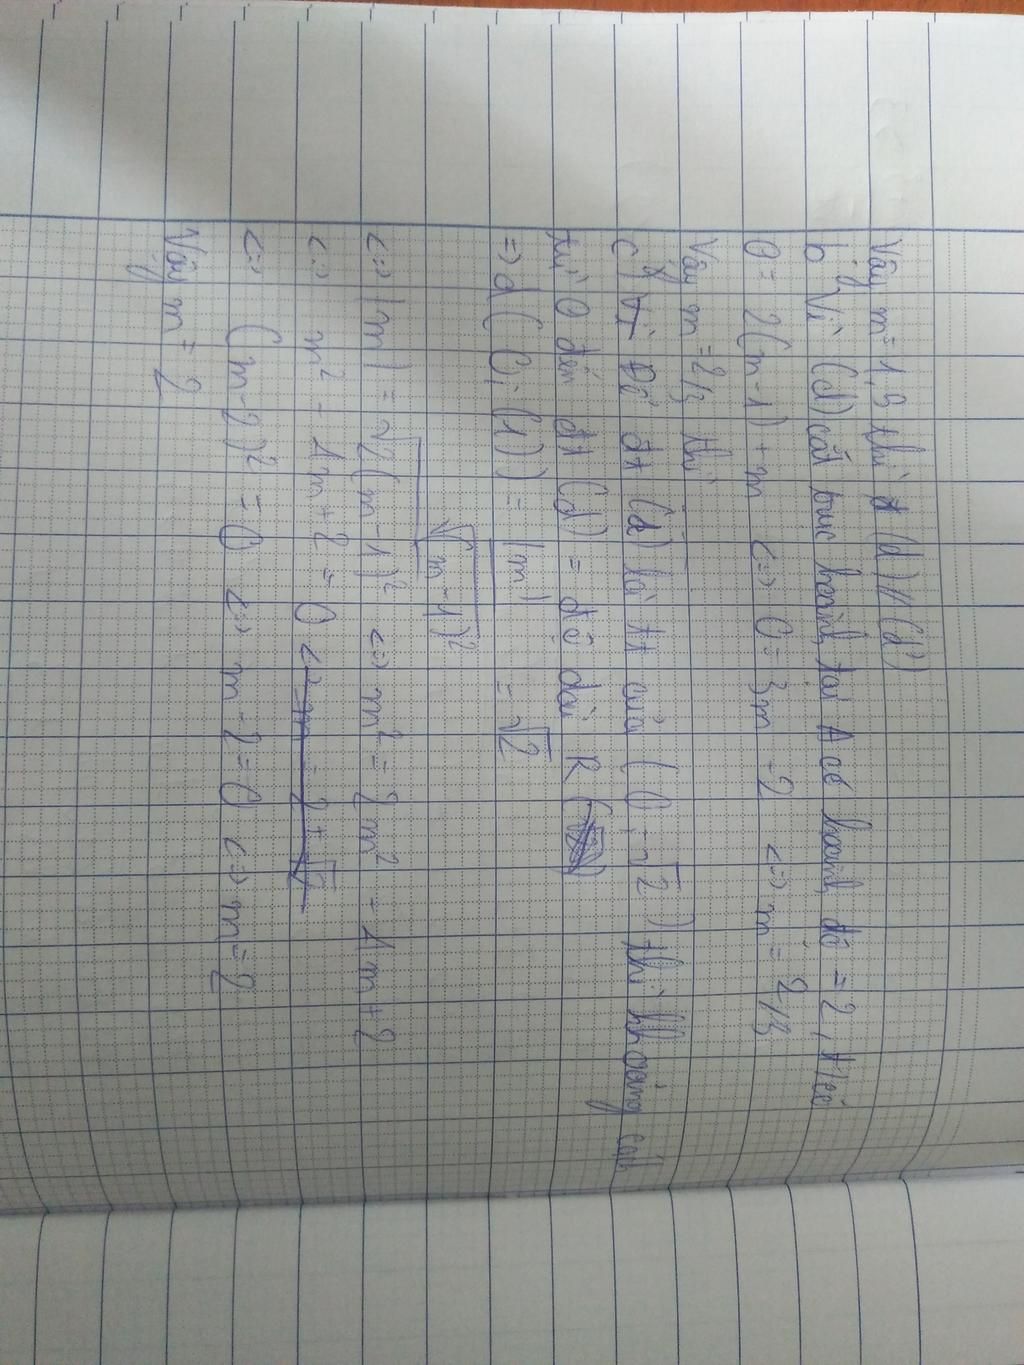 Vậy m = 1,5 thì (d) // (d')
b, Vì (d) cắt trục hoành tại A có hoành độ = 2, ta có
0 = 2(m-1) + m <=> 0 = 3m - 2 <=> m = 2/3
Vậy m = 2/3 thì
c, Để đt (d) là tt của (0; √2) thì khoảng cách
từ 0 đến đt (d) = độ dài R
=> d(0; (d)) = |m| / √(m-1)² = √2
<=> |m| = √2(m-1)² <=> m² = 2m² - 4m + 2
<=> m² - 4m + 2 = 0
<=> (m-2)² = 0 <=> m - 2 = 0 <=> m = 2
Vậy m = 2